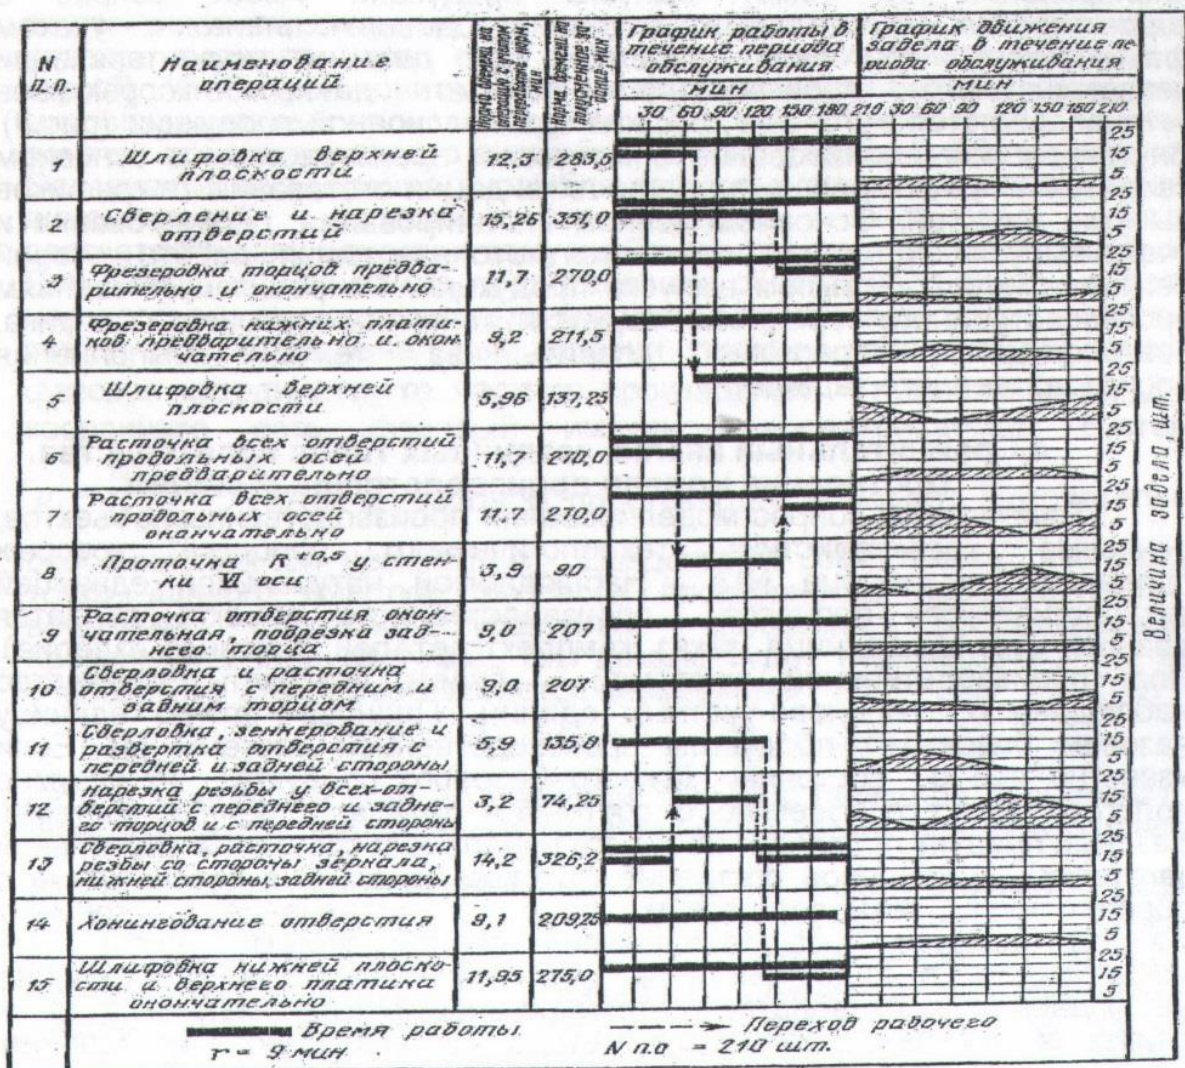 N
п.п.
Наименование
операций
График работы в
течение периода
обслуживания
мин
30 60 90 120 150 180 210
График движения
задела в течение пе-
риода обслуживания
мин
30 60 90 120 150 180 210
1
Шлифовка верхней
плоскости
12,3
283,5
25
15
5
2
Сверление и нарезка
отверстий
15,26
351,0
25
15
5
3
Фрезеровка торцов предва-
рительно и окончательно
11,7
270,0
25
15
5
4
Фрезеровка нижних плати-
ков предварительно и окон-
чательно
9,2
211,5
25
15
5
5
Шлифовка верхней
плоскости
5,96
137,25
25
15
5
6
Расточка всех отверстий
продольных осей
предварительно
11,7
270,0
25
15
5
7
Расточка всех отверстий
продольных осей
окончательно
11,7
270,0
25
15
5
8
Проточка R +0,5 у стен-
ки VI оси
3,9
90
25
15
5
9
Расточка отверстия окон-
чательная, подрезка зад-
него торца
9,0
207
25
15
5
10
Сверловка и расточка
отверстия с передним и
задним торцом
9,0
207
25
15
5
11
Сверловка, зенкерование и
развертка отверстия с
передней и задней стороны
5,9
135,8
25
15
5
12
Нарезка резьбы у всех от-
верстий с переднего и задне-
го торцов и с передней стороны
3,2
74,25
25
15
5
13
Сверловка, расточка, нарезка
резбы со стороны зеркала,
нижней стороны, задней стороны
14,2
326,2
25
15
5
14
Хонингование отверстия
9,1
209,25
25
15
5
15
Шлифовка нижней плоско-
сти и верхнего платика
окончательно
11,95
275,0
25
15
5
Величина задела, шт.
Время работы
Переход рабочего
r = 9 мин
N п.о = 210 шт.